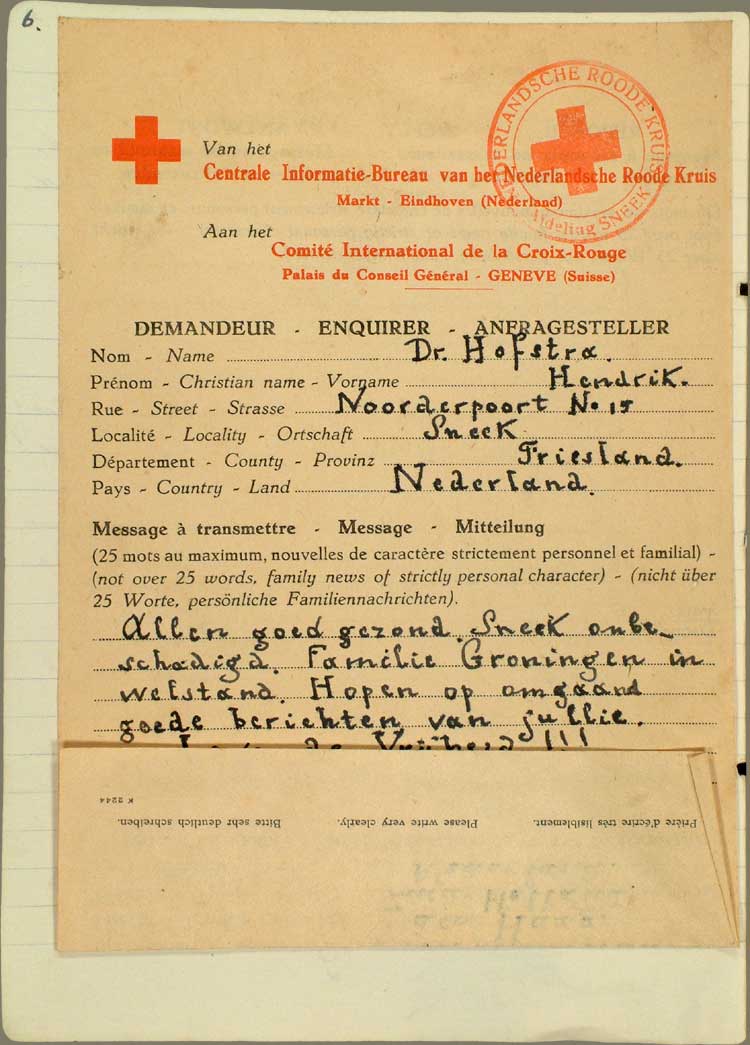 6.
NEDERLANDSCHE ROODE KRUIS
Afdeling SNEEK
Van het
Centrale Informatie-Bureau van het Nederlandsche Roode Kruis
Markt - Eindhoven (Nederland)
Aan het
Comité International de la Croix-Rouge
Palais du Conseil Général - GENEVE (Suisse)
DEMANDEUR - ENQUIRER - ANFRAGESTELLER
Nom - Name Dr. Hofstra.
Prénom - Christian name - Vorname Hendrik.
Rue - Street - Strasse Noorderpoort No 15
Localité - Locality - Ortschaft Sneek
Département - County - Provinz Friesland.
Pays - Country - Land Nederland.
Message à transmettre - Message - Mitteilung
(25 mots au maximum, nouvelles de caractère strictement personnel et familial) -
(not over 25 words, family news of strictly personal character) - (nicht über
25 Worte, persönliche Familiennachrichten).
Allen goed gezond. Sneek onbe-
schadigd. Familie Groningen in
welstand. Hopen op omgaand
goede berichten van jullie.
de Vrijheid!!!
Prière d'écrire très lisiblement. Please write very clearly. Bitte sehr deutlich schreiben.
K 2244